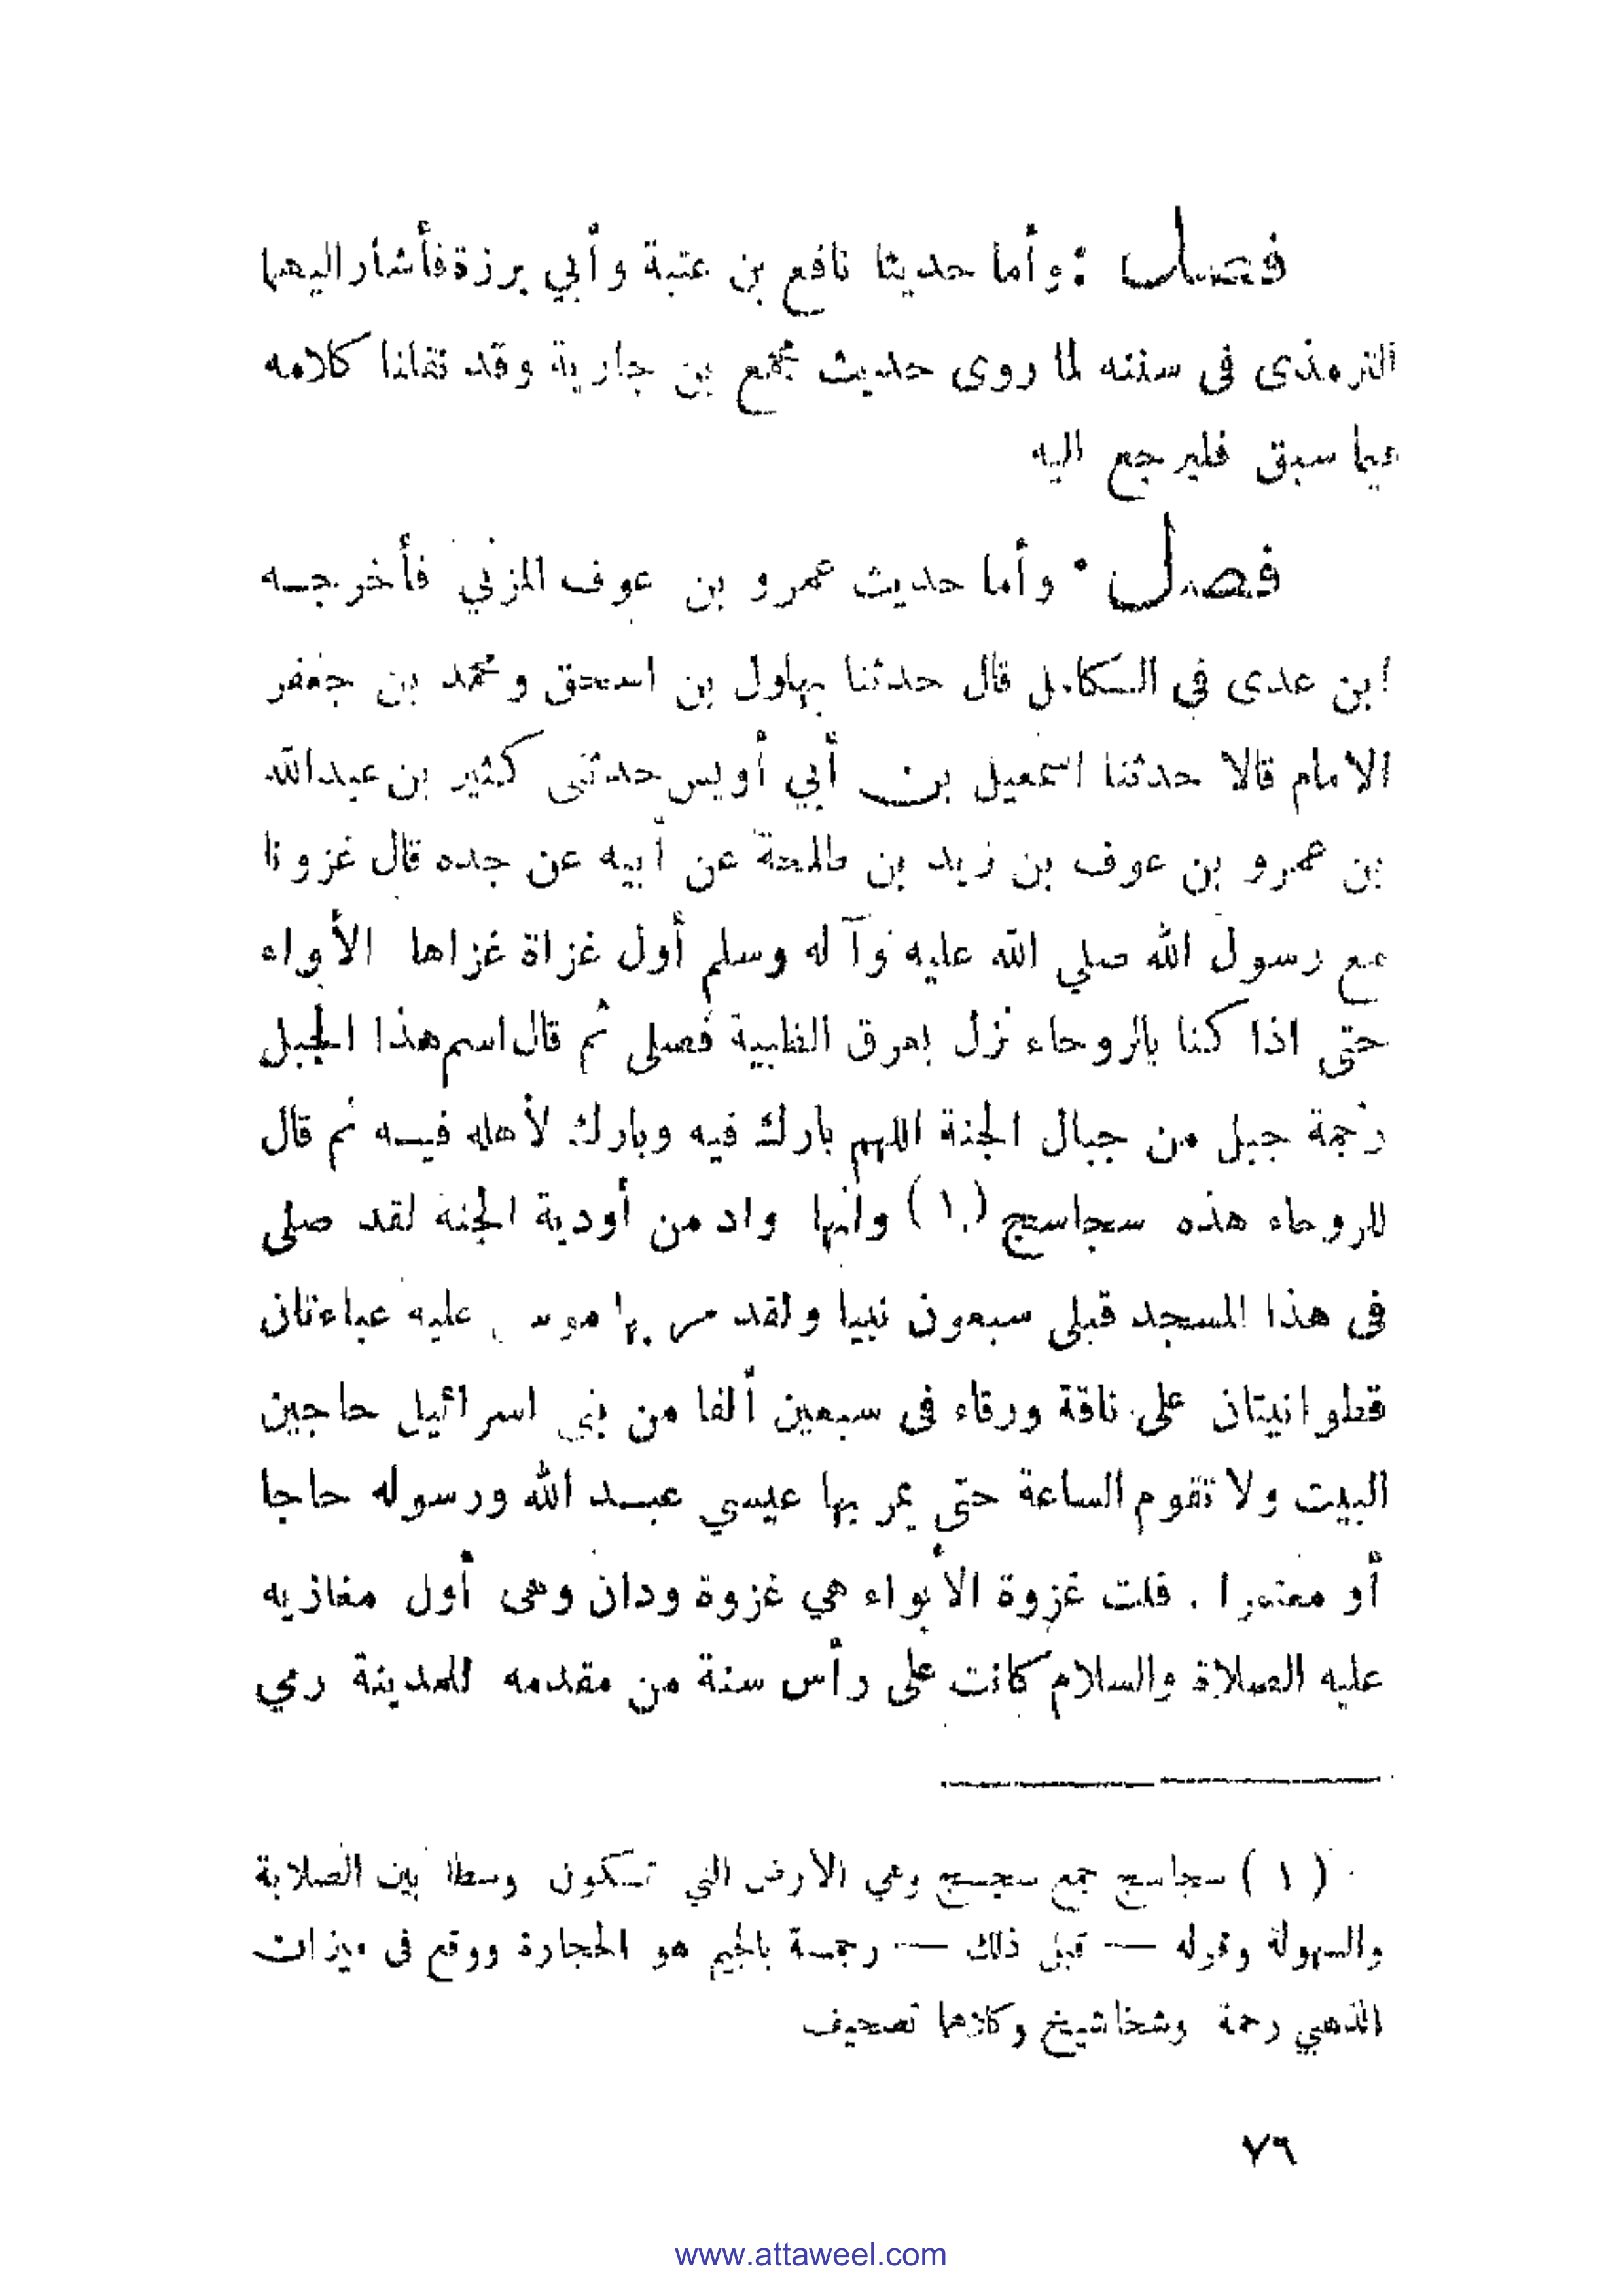 فصل : وأما حديثا نافع بن عتبة وأبي برزة فأشار اليهما
الترمذى فى سننه لما روى حديث مجمع بن جارية وقد نقلنا كلامه
فيما سبق فليرجع اليه
فصل · وأما حديث عمرو بن عوف المزني فأخرجه
ابن عدى فى الكامل قال حدثنا بهلول بن اسحق ومحمد بن جعفر
الامام قالا حدثنا اسمعيل بن أبي أويس حدثنى كثير بن عبدالله
بن عمرو بن عوف بن زيد بن طلحة عن أبيه عن جده قال غزونا
مع رسول الله صلي الله عليه وآ له وسلم أول غزاة غزاها الأبواء
حتى اذا كنا بالروحاء نزل بعرق الظبية فصلى ثم قال اسم هذا الجبل
رجمة جبل من جبال الجنة اللهم بارك فيه وبارك لأهله فيه ثم قال
للروحاء هذه سجاسج (١) وانها واد من أودية الجنة لقد صلى
فى هذا المسجد قبلى سبعون نبيا ولقد مر بها موسى عليه عباءتان
قطوانيتان على ناقة ورقاء فى سبعين ألفا من بني اسرائيل حاجين
البيت ولا تقوم الساعة حتى يمر بها عيسي عبد الله ورسوله حاجا
أو معتمرا . قلت غزوة الأبواء هي غزوة ودان وهى أول مغازيه
عليه الصلاة والسلام كانت على رأس سنة من مقدمه للمدينة رمي
(١) سجاسج جمع سجسج وهي الارض التي تكون وسطا بين الصلابة
والسهولة وقوله — قبل ذلك — رجمة بالجيم هو الحجارة ووقع فى ميزان
الذهبي رحمة وشخاشيخ وكلاهما تصحيف
٧٦
www.attaweel.com